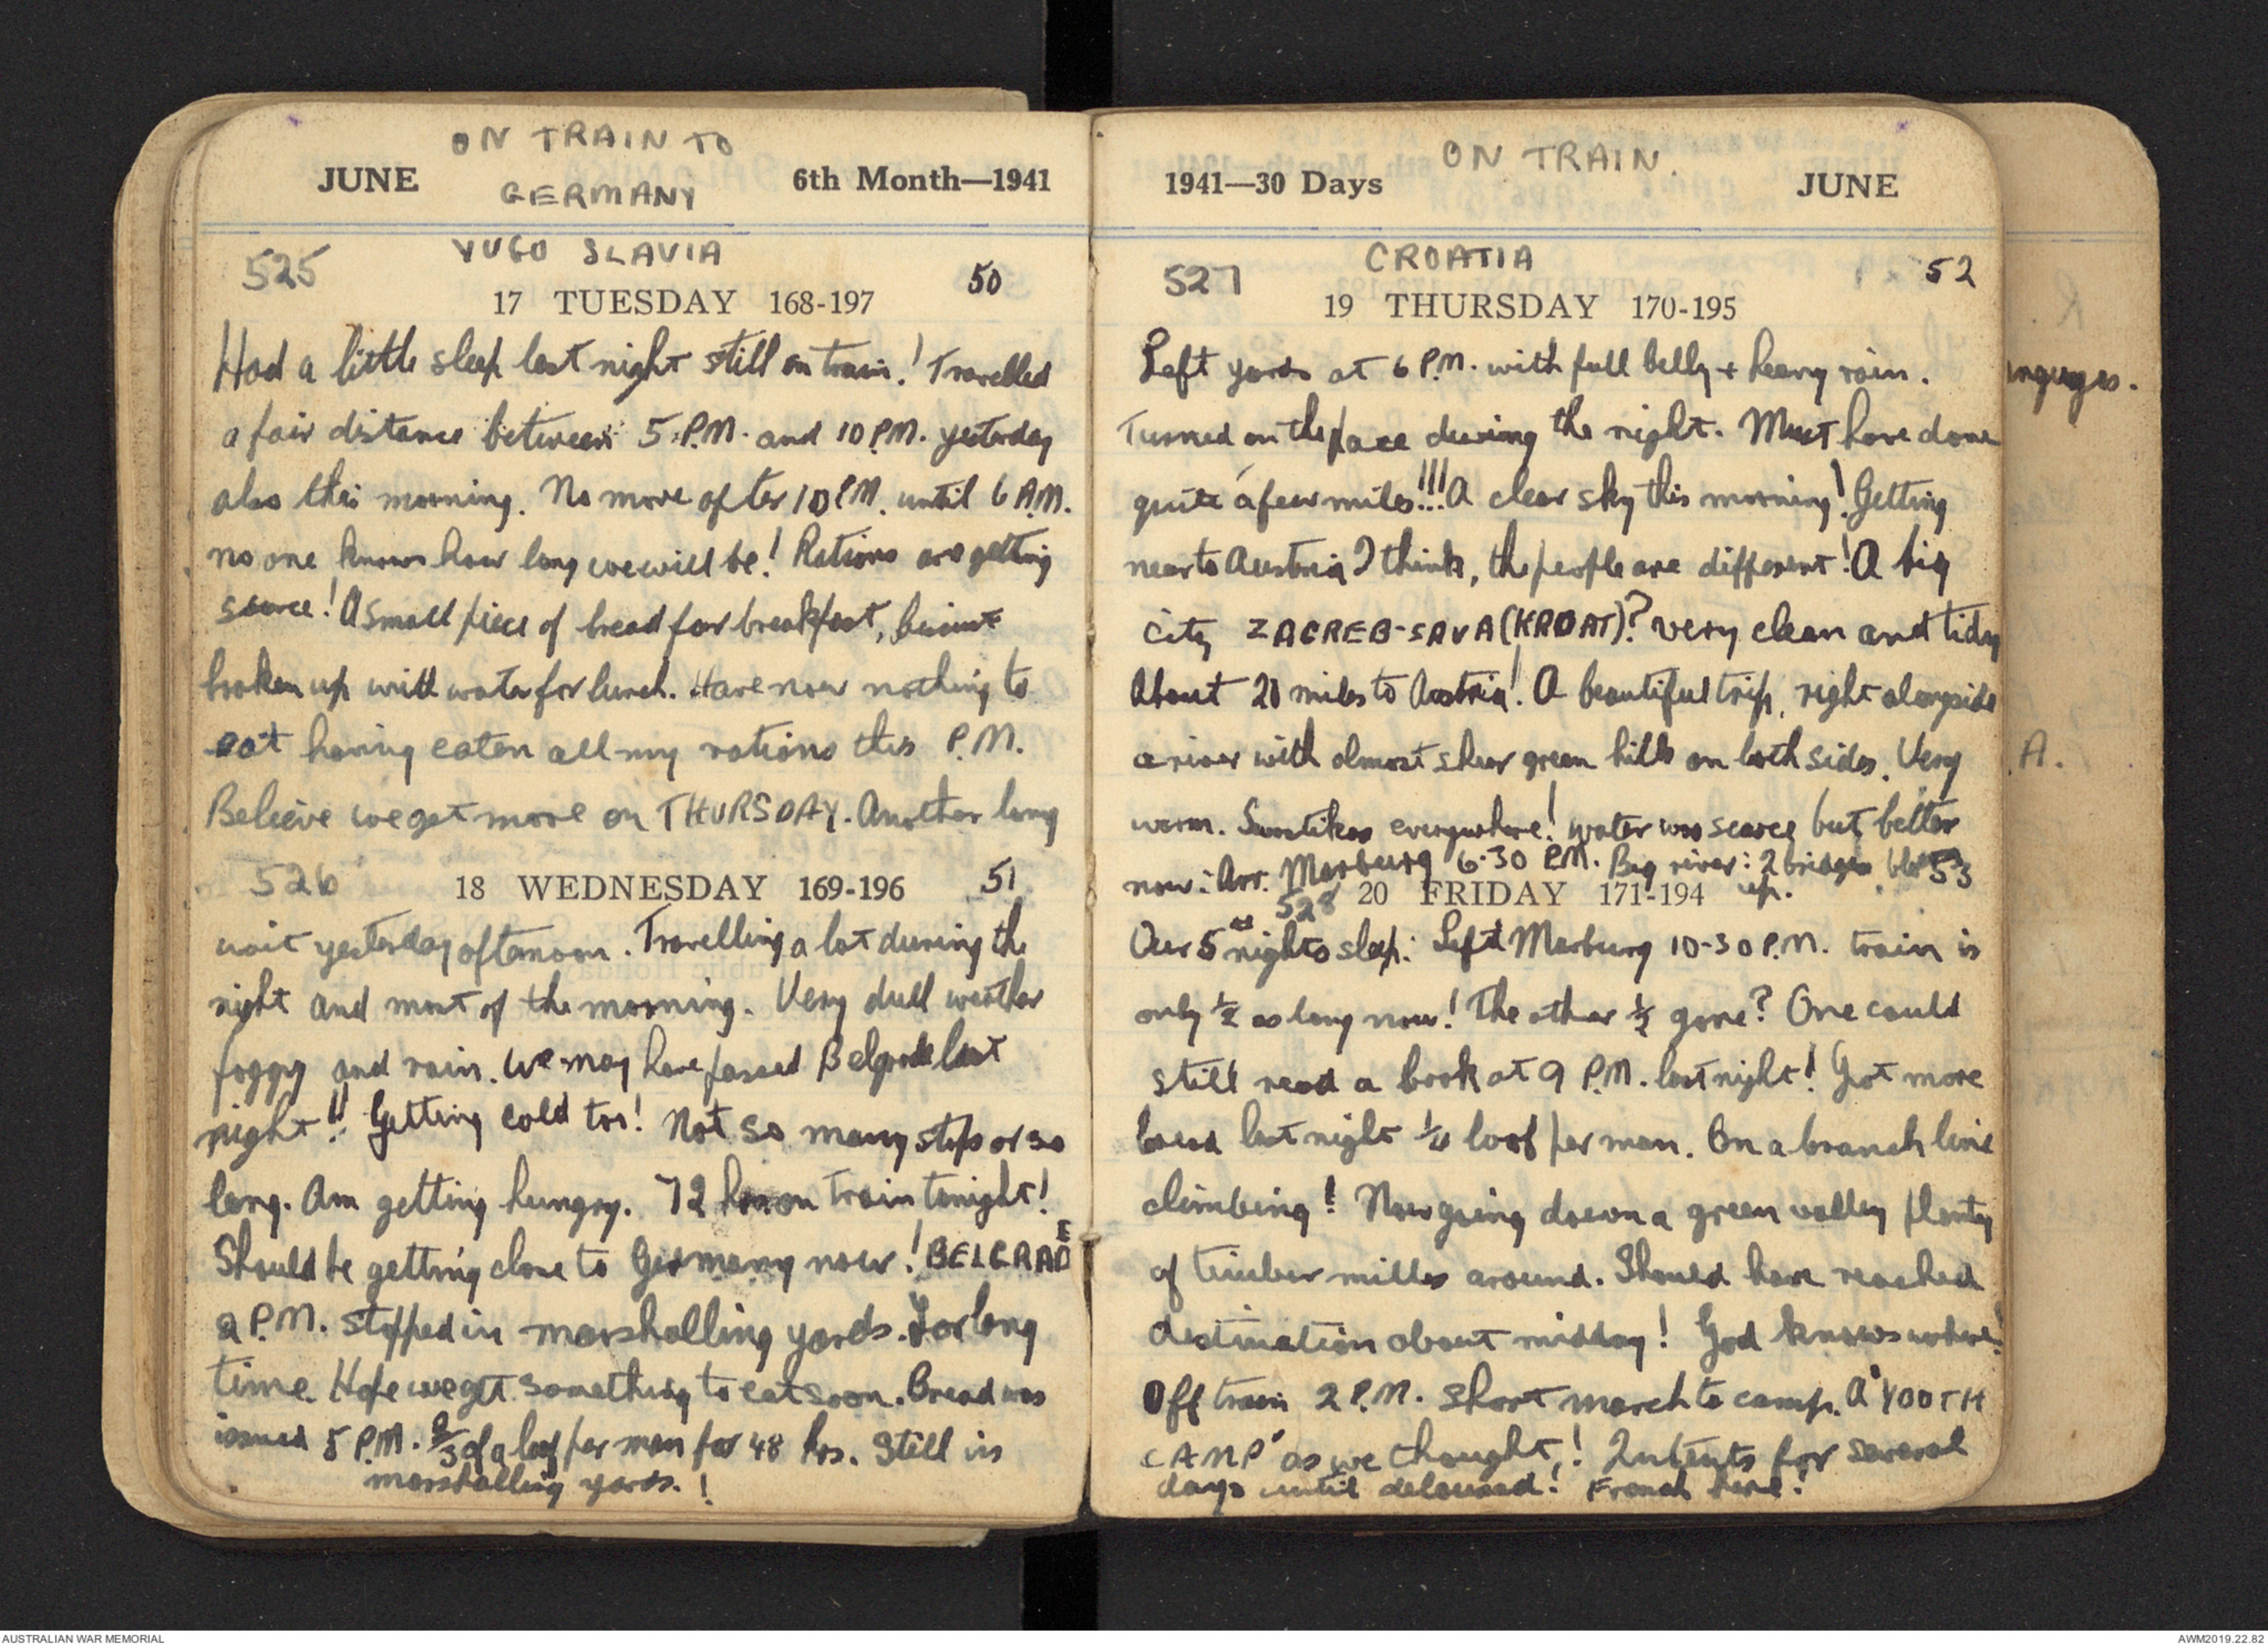 ON TRAIN TO
JUNE GERMANY 6th Month—1941
525 YUGO SLAVIA 50
17 TUESDAY 168-197
Had a little sleep last night still on train! Travelled
a fair distance between 5 P.M. and 10 P.M. yesterday
also this morning. No more after 10 P.M. until 6 A.M.
no one knows how long we will be! Rations are getting
scarce! A small piece of bread for breakfast, biscuit
broken up with water for lunch. Have now nothing to
eat having eaten all my rations this P.M.
Believe we get more on THURSDAY. Another long
526 18 WEDNESDAY 169-196 51
wait yesterday afternoon. Travelling a lot during the
night and most of the morning. Very dull weather
foggy and rain. We may have passed Belgrade last
night!! Getting cold too! Not so many stops or so
long. Am getting hungry. 72 hrs on train tonight!
Should be getting close to Germany now! BELGRADE
2 P.M. stopped in marshalling yards. For long
time. Hope we get something to eat soon. Bread was
issued 5 P.M. 2/3 of a loaf per man for 48 hrs. Still in
marshalling yards.!
ON TRAIN.
1941—30 Days JUNE
527 CROATIA 52
19 THURSDAY 170-195
Left yards at 6 P.M. with full belly + heavy rain.
Turned on the pace during the night. Must have done
quite a few miles!!! A clear sky this morning! Getting
near to Austria I think, the people are different! A big
city ZAGREB-SAVA (KROAT)? very clean and tidy
About 20 miles to Austria! A beautiful trip, right alongside
a river with almost sheer green hills on both sides. Very
warm. Swastikas everywhere! water was scarce but better
now: Arr. Marburg 6.30 P.M. Big river: 2 bridges blown
up.
528 20 FRIDAY 171-194 53
Our 5th nights sleep: Left Marburg 10-30 P.M. train is
only ½ as long now! The other ½ gone? One could
still read a book at 9 P.M. last night! Got more
bread last night loaf per man. On a branch line
climbing! Now going down a green valley plenty
of timber mills around. Should have reached
destination about midday! God knows where!
Off train 2 P.M. Short march to camp. A "YOUTH
CAMP" as we thought,! In tents for several
days until deloused! French here!
nguages.
A.
AUSTRALIAN WAR MEMORIAL
AWM2019.22.82